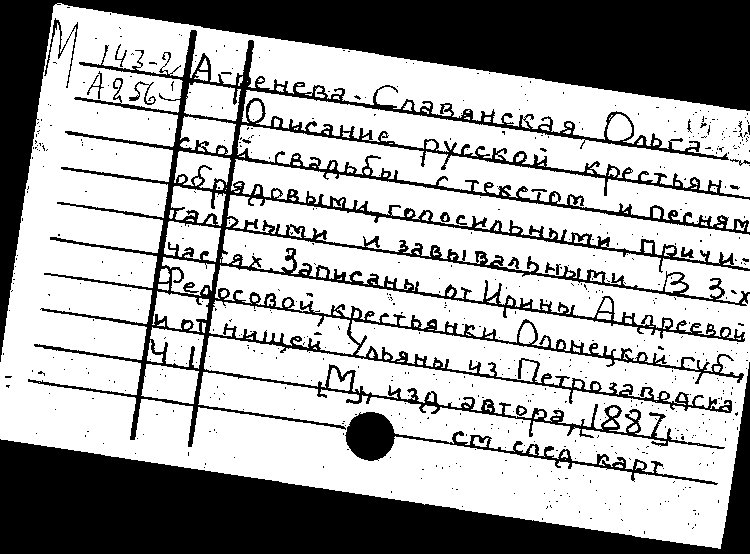 М 143-2
А256
Агренева-Славянская, Ольга
Описание русской крестьян-
ской свадьбы с текстом и песням
обрядовыми, голосильными, причи-
тальными и завывальными. В 3-х
частях. Записаны от Ирины Андреевой
Федосовой, крестьянки Олонецкой губ.,
и от нищей Ульяны из Петрозаводска.
Ч. 1
[М], изд. автора, [1887].
см. след карт